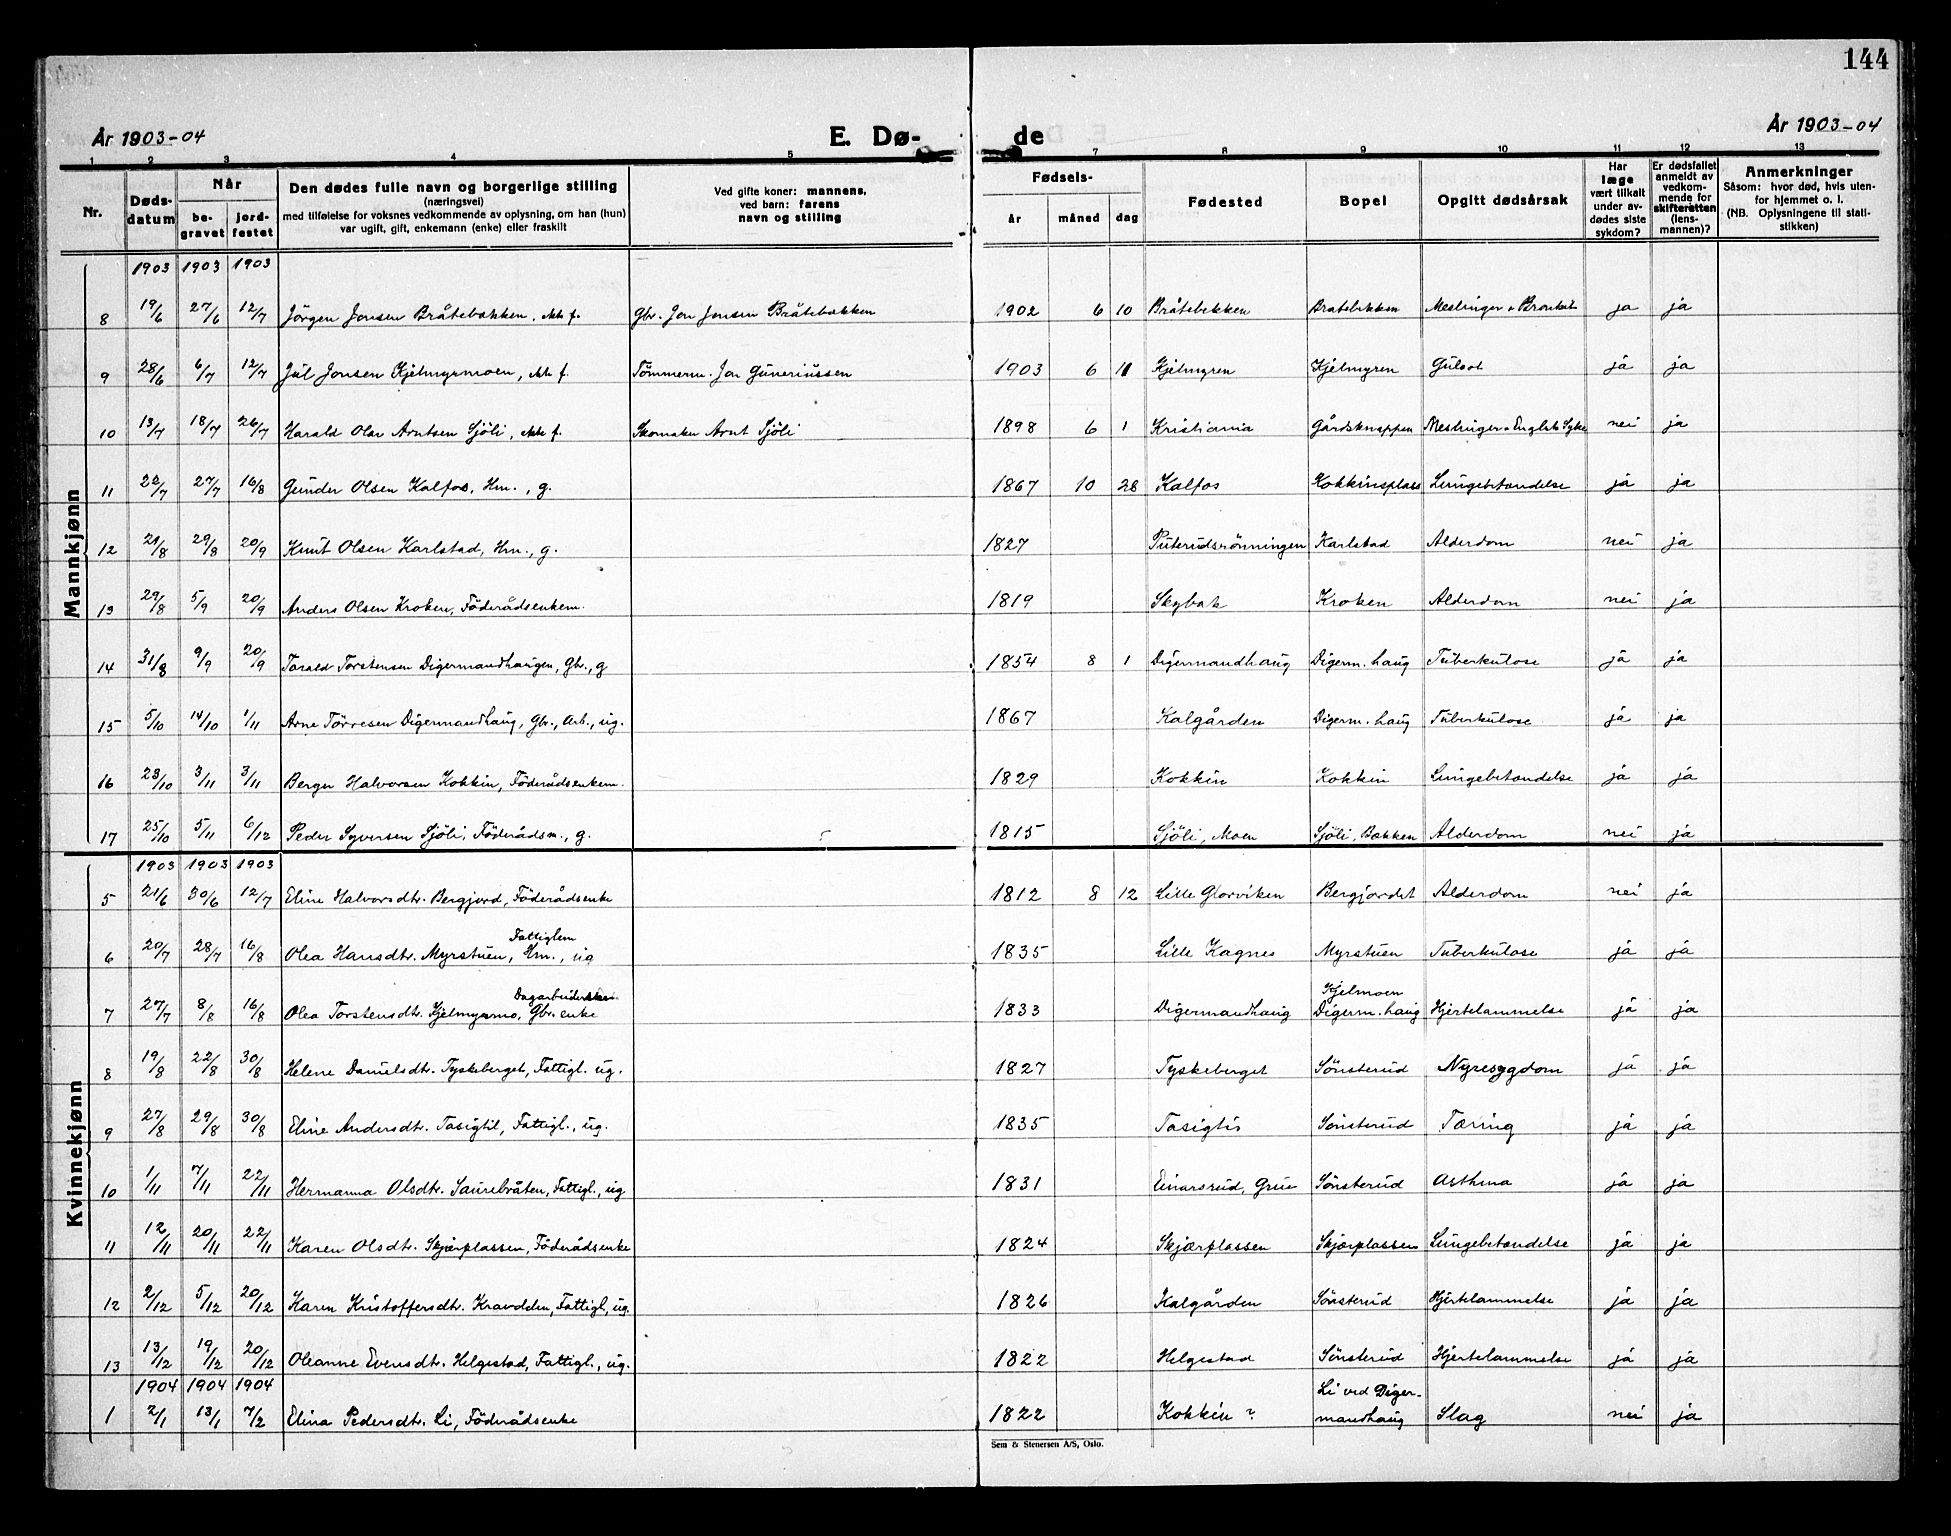 144
År 1903-04
E. Dø-
de
År 1903-04
1 2 3 4 5 7 8 9 10 11 12 13
Nr.
Døds-
datum
Når
be-
gravet
jord-
festet
Den dødes fulle navn og borgerlige stilling
(næringsvei)
med tilføielse for voksnes vedkommende av oplysning, om han (hun)
var ugift, gift, enkemann (enke) eller fraskilt
Ved gifte koner: mannens,
ved barn: farens
navn og stilling
Fødsels-
år måned dag
Fødested
Bopel
Opgitt dødsårsak
Har
læge
vært tilkalt
under av-
dødes siste
sykdom?
Er dødsfallet
anmeldt av
vedkom-
mende for
skifteretten
(lens-
mannen)?
Anmerkninger
Såsom: hvor død, hvis uten-
for hjemmet o. l.
(NB. Oplysningene til stati-
stikken)
Mannkjønn
1903 1903 1903
8 19/6 27/6 12/7 Jörgen Jonsen Bråtebækken, ikke f. Gbr. Jon Jonsen Bråtebækken 1902 6 10 Bråtebekken Bratebekken Meslinger o Bronkit ja ja
9 28/6 6/7 12/7 Jul Jonsen Kjelmyrmoen, ikke f. Tömmerm. Jon Guneriussen 1903 6 11 Kjelmyren Kjelmyren Gulsot ja ja
10 13/7 18/7 26/7 Harald Olav Arntsen Sjöli, ikke f. Skomaker Arnt Sjöli 1898 6 1 Kristiania Gårdsknappen Meslinger o Englsk Syke nei ja
11 22/7 27/7 16/8 Gunder Olsen Kalfos, Hm., g. 1867 10 28 Kalfos Kokkinsplass Lungebetændelse ja ja
12 21/8 29/8 20/9 Knut Olsen Karlstad, Hm., g. 1827 Puterudsrönningen Karlstad Alderdom nei ja
13 29/8 5/9 20/9 Anders Olsen Kroken, Föderådsenkem. 1819 Skybak Kroken Alderdom nei ja
14 31/8 9/9 20/9 Tarald Torstensen Digermandhaugen, Gbr., g 1854 8 1 Digermandhaug Digerm. haug Tuberkulose ja ja
15 5/10 14/10 1/11 Arne Törresen Digermandhaug, Gbr., Arb., ug. 1867 Kalgården Digerm. haug Tuberkulose ja ja
16 23/10 3/11 3/11 Berger Halvorsen Kokkin, Föderådsenkem. 1829 Kokkin Kokkin Lungebetændelse ja ja
17 25/10 5/11 6/12 Peder Syversen Sjöli, Föderådsm., g. 1815 Sjöli, Moen Sjöli, Bækken Alderdom nei ja
Kvinnekjønn
1903 1903 1903
5 21/6 30/6 12/7 Eline Halvorsdtr. Bergjord, Föderådsenke 1812 8 12 Lille Glorviken Bergjordet Alderdom nei ja
Fattiglem
6 20/7 28/7 16/8 Olea Hansdtr. Myrstuen, Hm., ug 1835 Lille Kagnes Myrstuen Tuberkulose ja ja
Kjelmoen
7 27/7 8/8 16/8 Olea Torstensdtr. Kjelmyrmo, Gbr. enke 1833 Digermandhaug Digerm. haug Hjertelammelse ja ja
8 19/8 22/8 30/8 Helene Danielsdtr. Tyskeberget, Fattigl. ug. 1827 Tyskeberget Sönsterud Nyresygdom ja ja
9 27/8 29/8 30/8 Eline Andersdtr. Tasigtil, Fattigl., ug. 1835 Tasigtis Sönsterud Tæring ja ja
10 1/11 7/11 22/11 Hermanna Olsdtr. Saurebråten, Fattigl., ug 1831 Einarsrud, Grue Sönsterud Asthma ja ja
11 12/11 20/11 22/11 Karen Olsdtr. Skjærplassen, Föderådsenke 1824 Skjærplassen Skjærplassen Lungebetændelse ja ja
12 2/12 5/12 20/12 Karen Kristoffersdtr. Kravdden, Fattigl., ug. 1826 Kalgården Sönsterud Hjertelammelse ja ja
13 13/12 19/12 20/12 Oleanne Evensdtr. Helgestad, Fattigl., ug. 1822 Helgestad Sönsterud Hjertelammelse ja ja
1904 1904 1904
Li ved Diger-
1 2/1 13/1 7/2 Elina Pedersdtr. Li, Föderådsenke 1822 Kokkin ? mandhaug Slag nei ja
Sem & Stenersen A/S, Oslo.